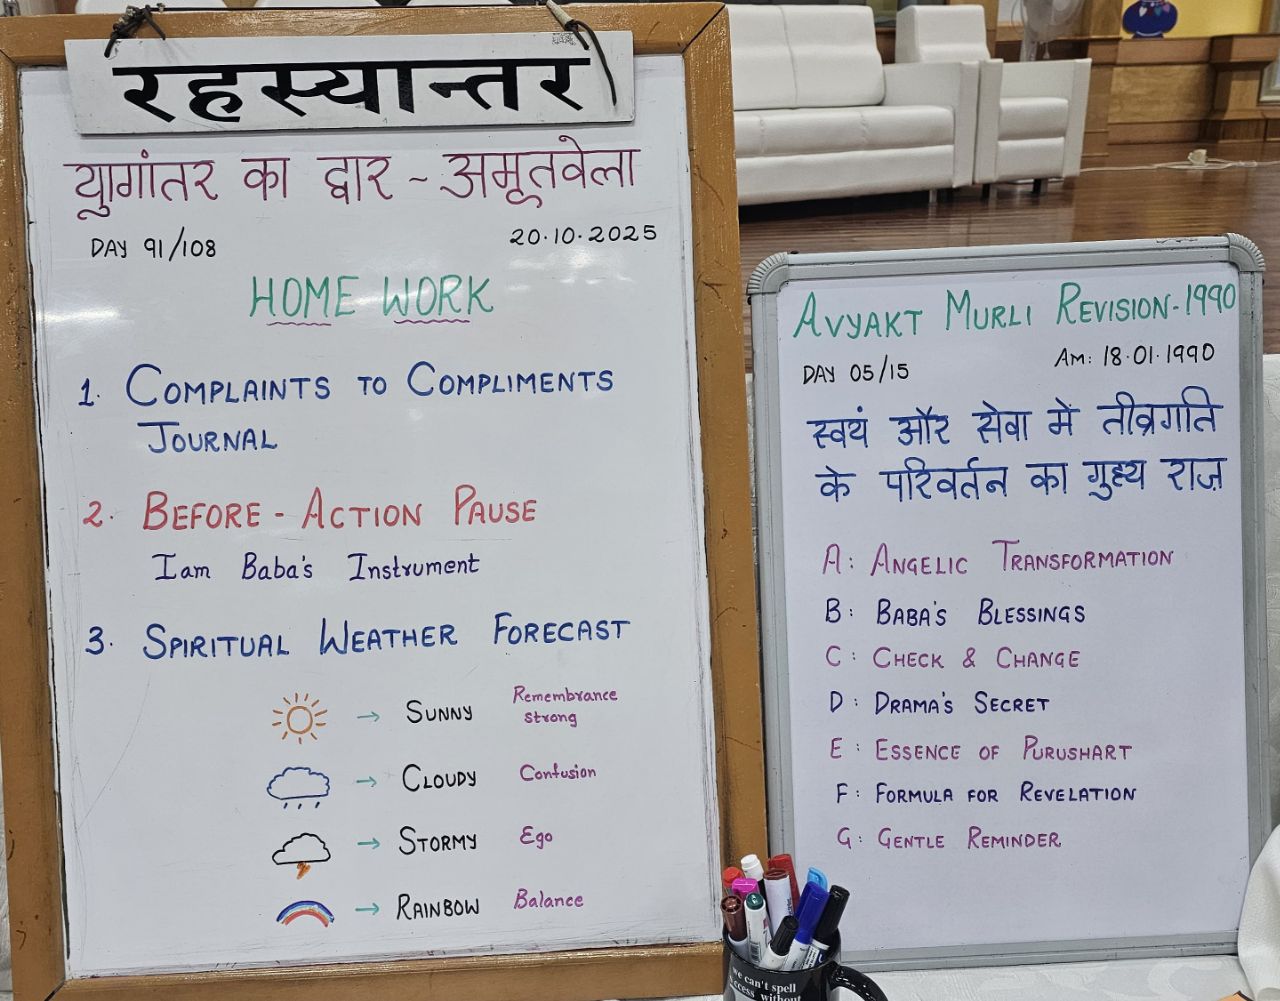 रहस्यान्तर
युगांतर का द्वार - अमृतवेला
DAY 91/108
20.10.2025
HOME WORK
1. COMPLAINTS TO COMPLIMENTS
JOURNAL
2. BEFORE - ACTION PAUSE
I am Baba's Instrument
3. SPIRITUAL WEATHER FORECAST
→ SUNNY Remembrance
strong
→ CLOUDY Confusion
→ STORMY Ego
→ RAINBOW Balance
AVYAKT MURLI REVISION-1990
DAY 05/15
AM: 18.01.1990
स्वयं और सेवा में तीव्रगति
के परिवर्तन का गुह्य राज़
A: ANGELIC TRANSFORMATION
B: BABA'S BLESSINGS
C: CHECK & CHANGE
D: DRAMA'S SECRET
E: ESSENCE OF PURUSHART
F: FORMULA FOR REVELATION
G: GENTLE REMINDER
we can't spell
without